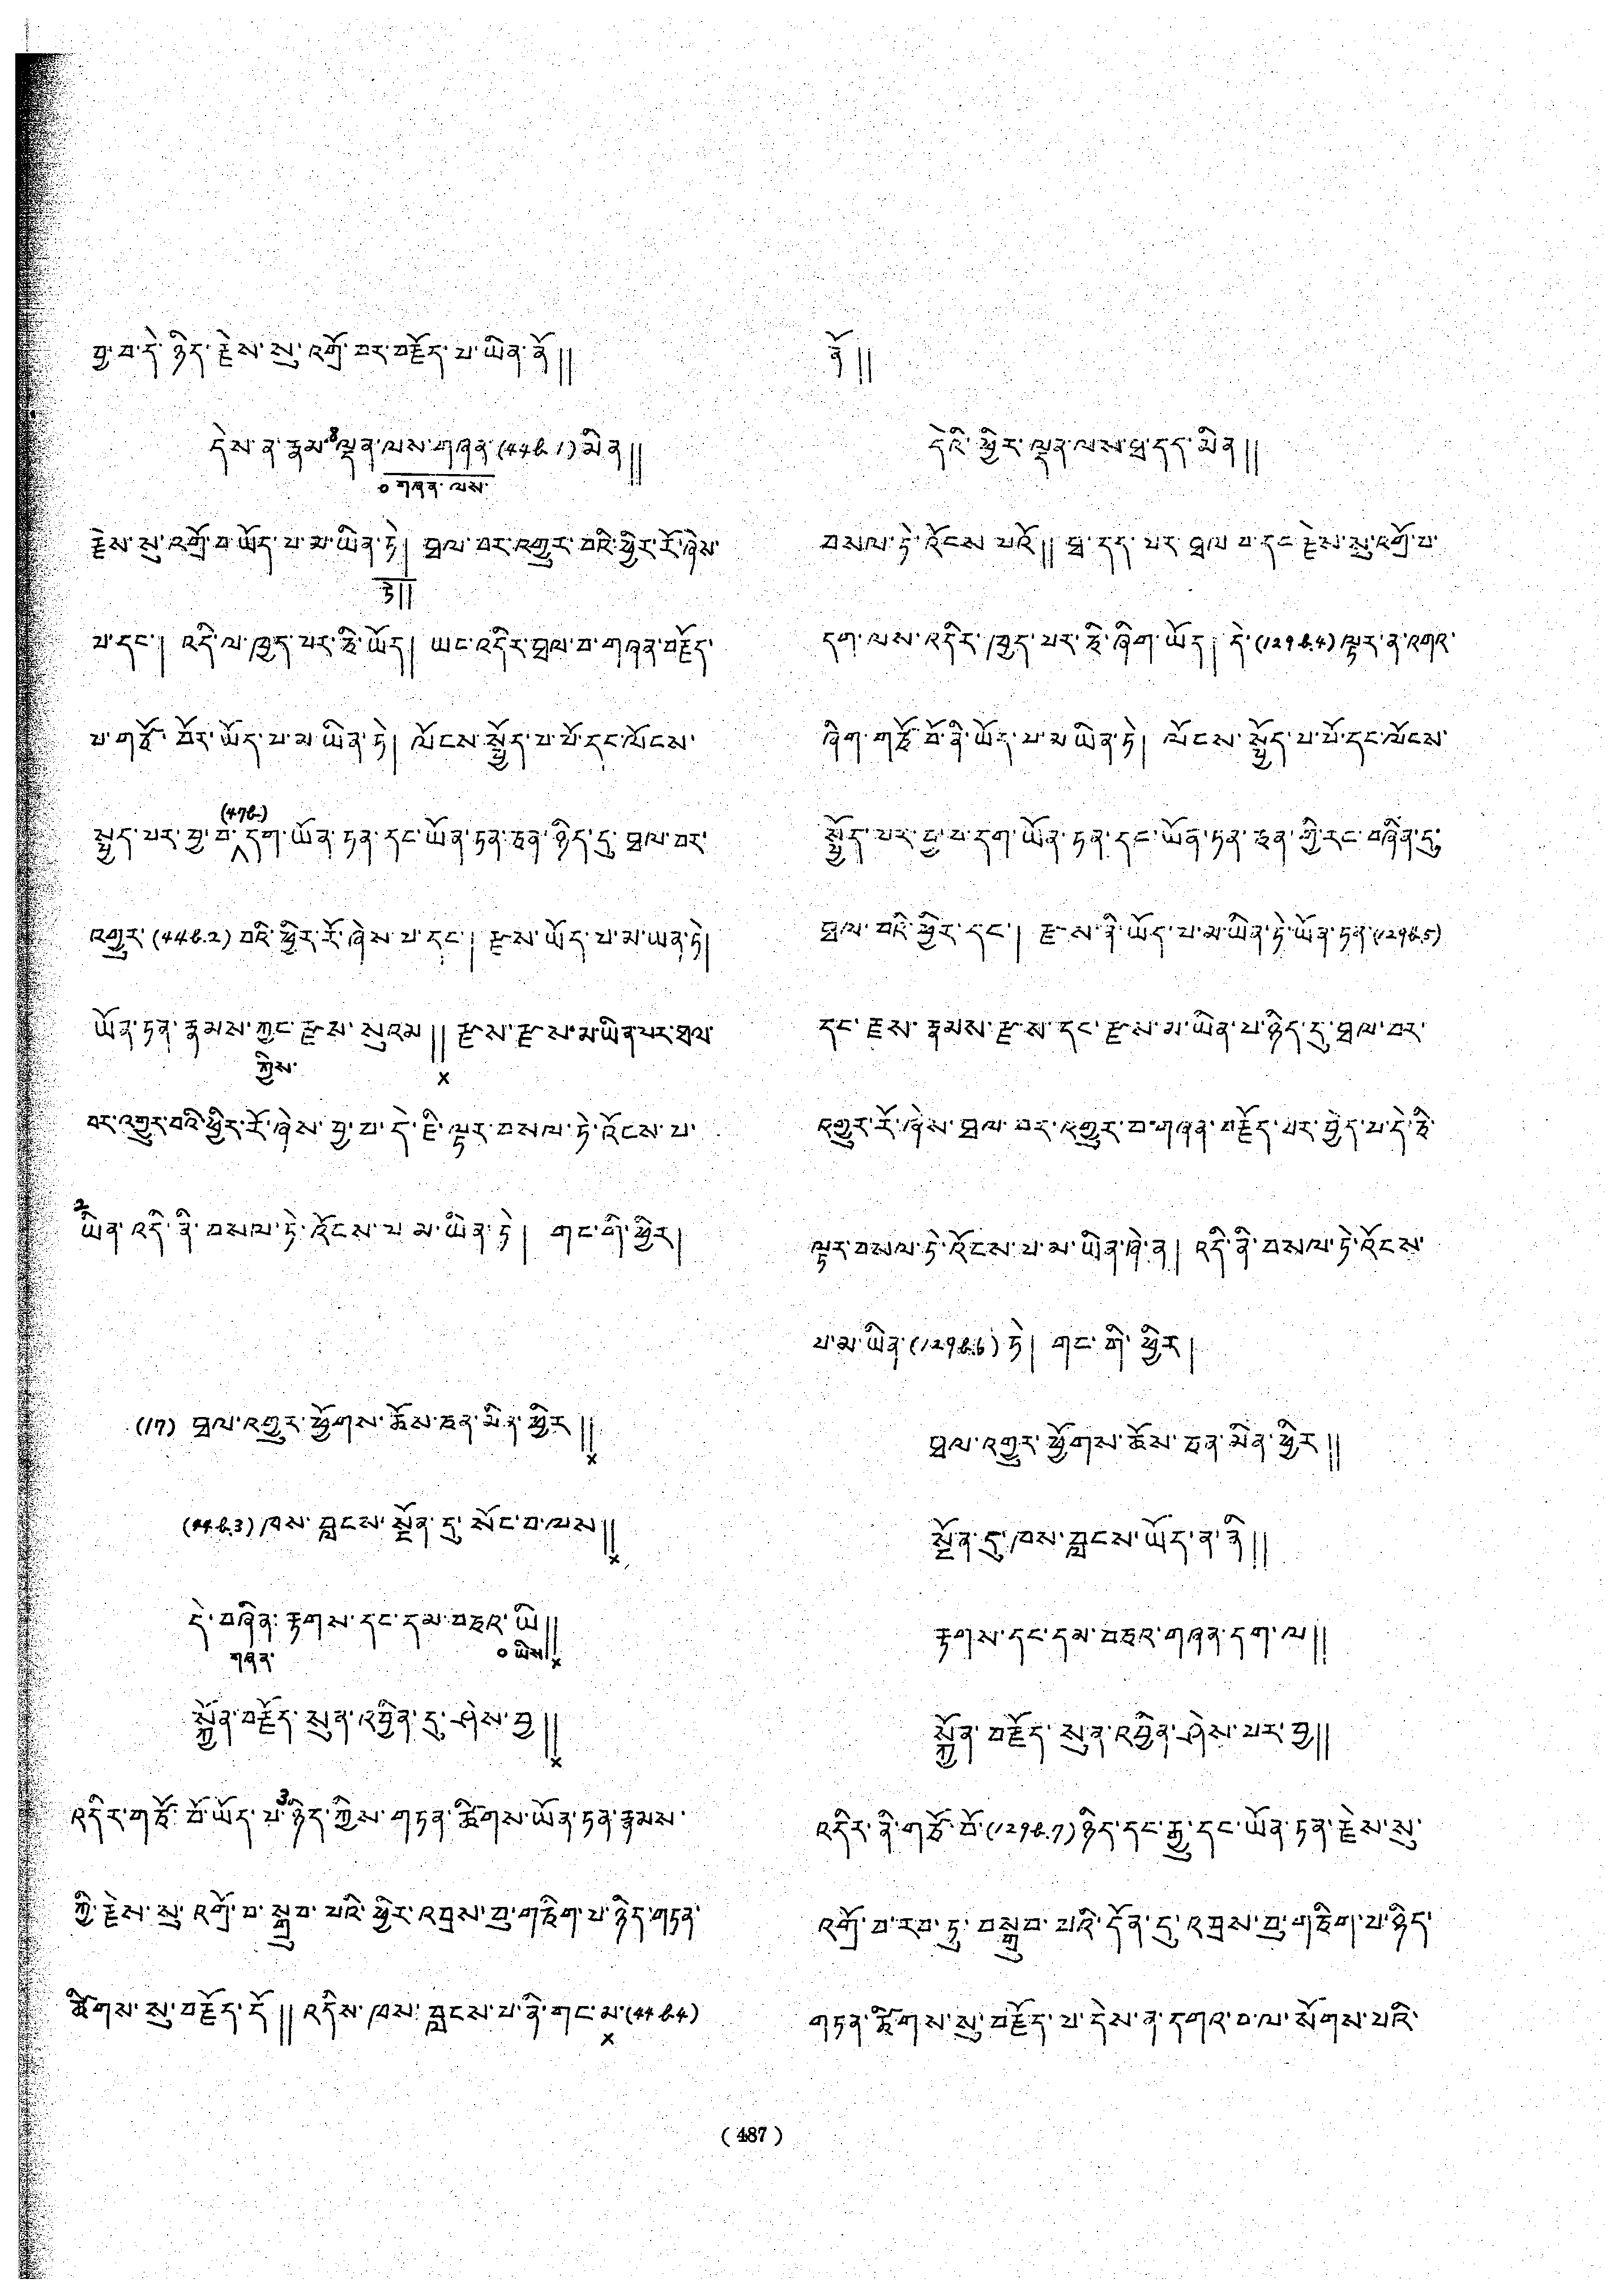 བྱ་བ་དེ་ཉིད་རྗེས་སུ་འགྲོ་བར་བརྗོད་པ་ཡིན་ནོ༎
དེས་ན་རྣམ་ལྡན་ལས་གཞན་(44b.1)མིན༎
༠གཞན་ལས་
རྗེས་སུ་འགྲོ་བ་ཡོད་པ་མ་ཡིན་ཏེ། ཐལ་བར་འགྱུར་བའི་ཕྱིར་རོ་ཞེས་
ཏེ༎
པ་དང་། འདི་ལ་ཁྱད་པར་ཅི་ཡོད། ཡང་འདིར་ཐལ་བ་གཞན་བརྗོད་
པ་གཙོ་བོར་ཡོད་པ་མ་ཡིན་ཏེ། ལོངས་སྤྱོད་པ་པོ་དང་ལོངས་
(47b)
སྤྱད་པར་བྱ་བ་དག་ཡོན་ཏན་དང་ཡོན་ཏན་ཅན་ཉིད་དུ་ཐལ་བར་
འགྱུར་(44b.2)བའི་ཕྱིར་རོ་ཞེས་པ་དང་། རྫས་ཡོད་པ་མ་ཡན་ཏེ།
ཡོན་ཏན་རྣམས་ཀྱང་རྫས་སུའམ༎ རྫས་རྫས་མ་ཡིན་པར་ཐལ་
ཀྱིས་ x
བར་འགྱུར་བའི་ཕྱིར་རོ་ཞེས་བྱ་བ་དེ་ཇི་ལྟར་བསལ་ཏེ་འོངས་པ་
2
ཡིན་འདི་ནི་བསལ་ཏེ་འོངས་པ་མ་ཡིན་ཏེ། གང་གི་ཕྱིར།
(17) ཐལ་འགྱུར་ཕྱོགས་ཆོས་ཅན་མིན་ཕྱིར༎
x
(44b.3)ཁས་བླངས་སྔོན་དུ་སོང་བ་ལས༎
x
དེ་བཞིན་རྟགས་དང་དམ་བཅའ་ཡི༎
གཞན་ ༠ཡིས༎ x
སྐྱོན་བརྗོད་སུན་འབྱིན་དུ་ཤེས་བྱ༎
x
འདིར་གཙོ་བོ་ཡོད་པ་3ཉིད་ཀྱིས་གཏན་ཚིགས་ཡོན་ཏན་རྣམས་
ཀྱི་རྗེས་སུ་འགྲོ་བ་སྒྲུབ་པའི་ཕྱིར་འབྲས་བུ་གཅིག་པ་ཉིད་གཏན་
ཚིགས་སུ་བརྗོད་དོ༎ འདིས་ཁས་བླངས་པ་ནི་གང་མ་(44b.4)
x
ནོ༎
དེའི་ཕྱིར་ལྡན་ལས་ཐ་དད་མིན༎
བསལ་ཏེ་འོངས་པའོ༎ ཐ་དད་པར་ཐལ་བ་དང་རྗེས་སུ་འགྲོ་བ་
དག་ལས་འདིར་ཁྱད་པར་ཅི་ཞིག་ཡོད། དེ་(129b.4)ལྟར་ན་འགའ་
ཞིག་གཙོ་བོ་ནི་ཡོད་པ་མ་ཡིན་ཏེ། ལོངས་སྤྱོད་པ་པོ་དང་ལོངས་
སྤྱོད་པར་བྱ་བ་དག་ཡོན་ཏན་དང་ཡོན་ཏན་ཅན་གྱི་རང་བཞིན་དུ་
ཐལ་བའི་ཕྱིར་དང་། རྫས་ནི་ཡོད་པ་མ་ཡིན་ཏེ་ཡོན་ཏན་(129b.5)
དང་རྫས་རྣམས་རྫས་དང་རྫས་མ་ཡིན་པ་ཉིད་དུ་ཐལ་བར་
འགྱུར་རོ་ཞེས་ཐལ་བར་འགྱུར་བ་གཞན་བརྗོད་པར་བྱེད་པ་དེ་ཇི་
ལྟར་བསལ་ཏེ་འོངས་པ་མ་ཡིན་ཞེ་ན། འདི་ནི་བསལ་ཏེ་འོངས་
པ་མ་ཡིན་(129b.6)ཏེ། གང་གི་ཕྱིར།
ཐལ་འགྱུར་ཕྱོགས་ཆོས་ཅན་མིན་ཕྱིར༎
སྔོན་དུ་ཁས་བླངས་ཡོད་ན་ནི༎
རྟགས་དང་དམ་བཅའ་གཞན་དག་ལ༎
སྐྱོན་བརྗོད་སུན་འབྱིན་ཤེས་པར་བྱ༎
འདིར་ནི་གཙོ་བོ་(129b.7)ཉིད་དང་རྒྱུ་དང་ཡོན་ཏན་རྗེས་སུ་
འགྲོ་བ་རབ་ཏུ་བསྒྲུབ་པའི་དོན་དུ་འབྲས་བུ་གཅིག་པ་ཉིད་
གཏན་ཚིགས་སུ་བརྗོད་པ་དེས་ན་དགའ་བ་ལ་སོགས་པའི་
(487)